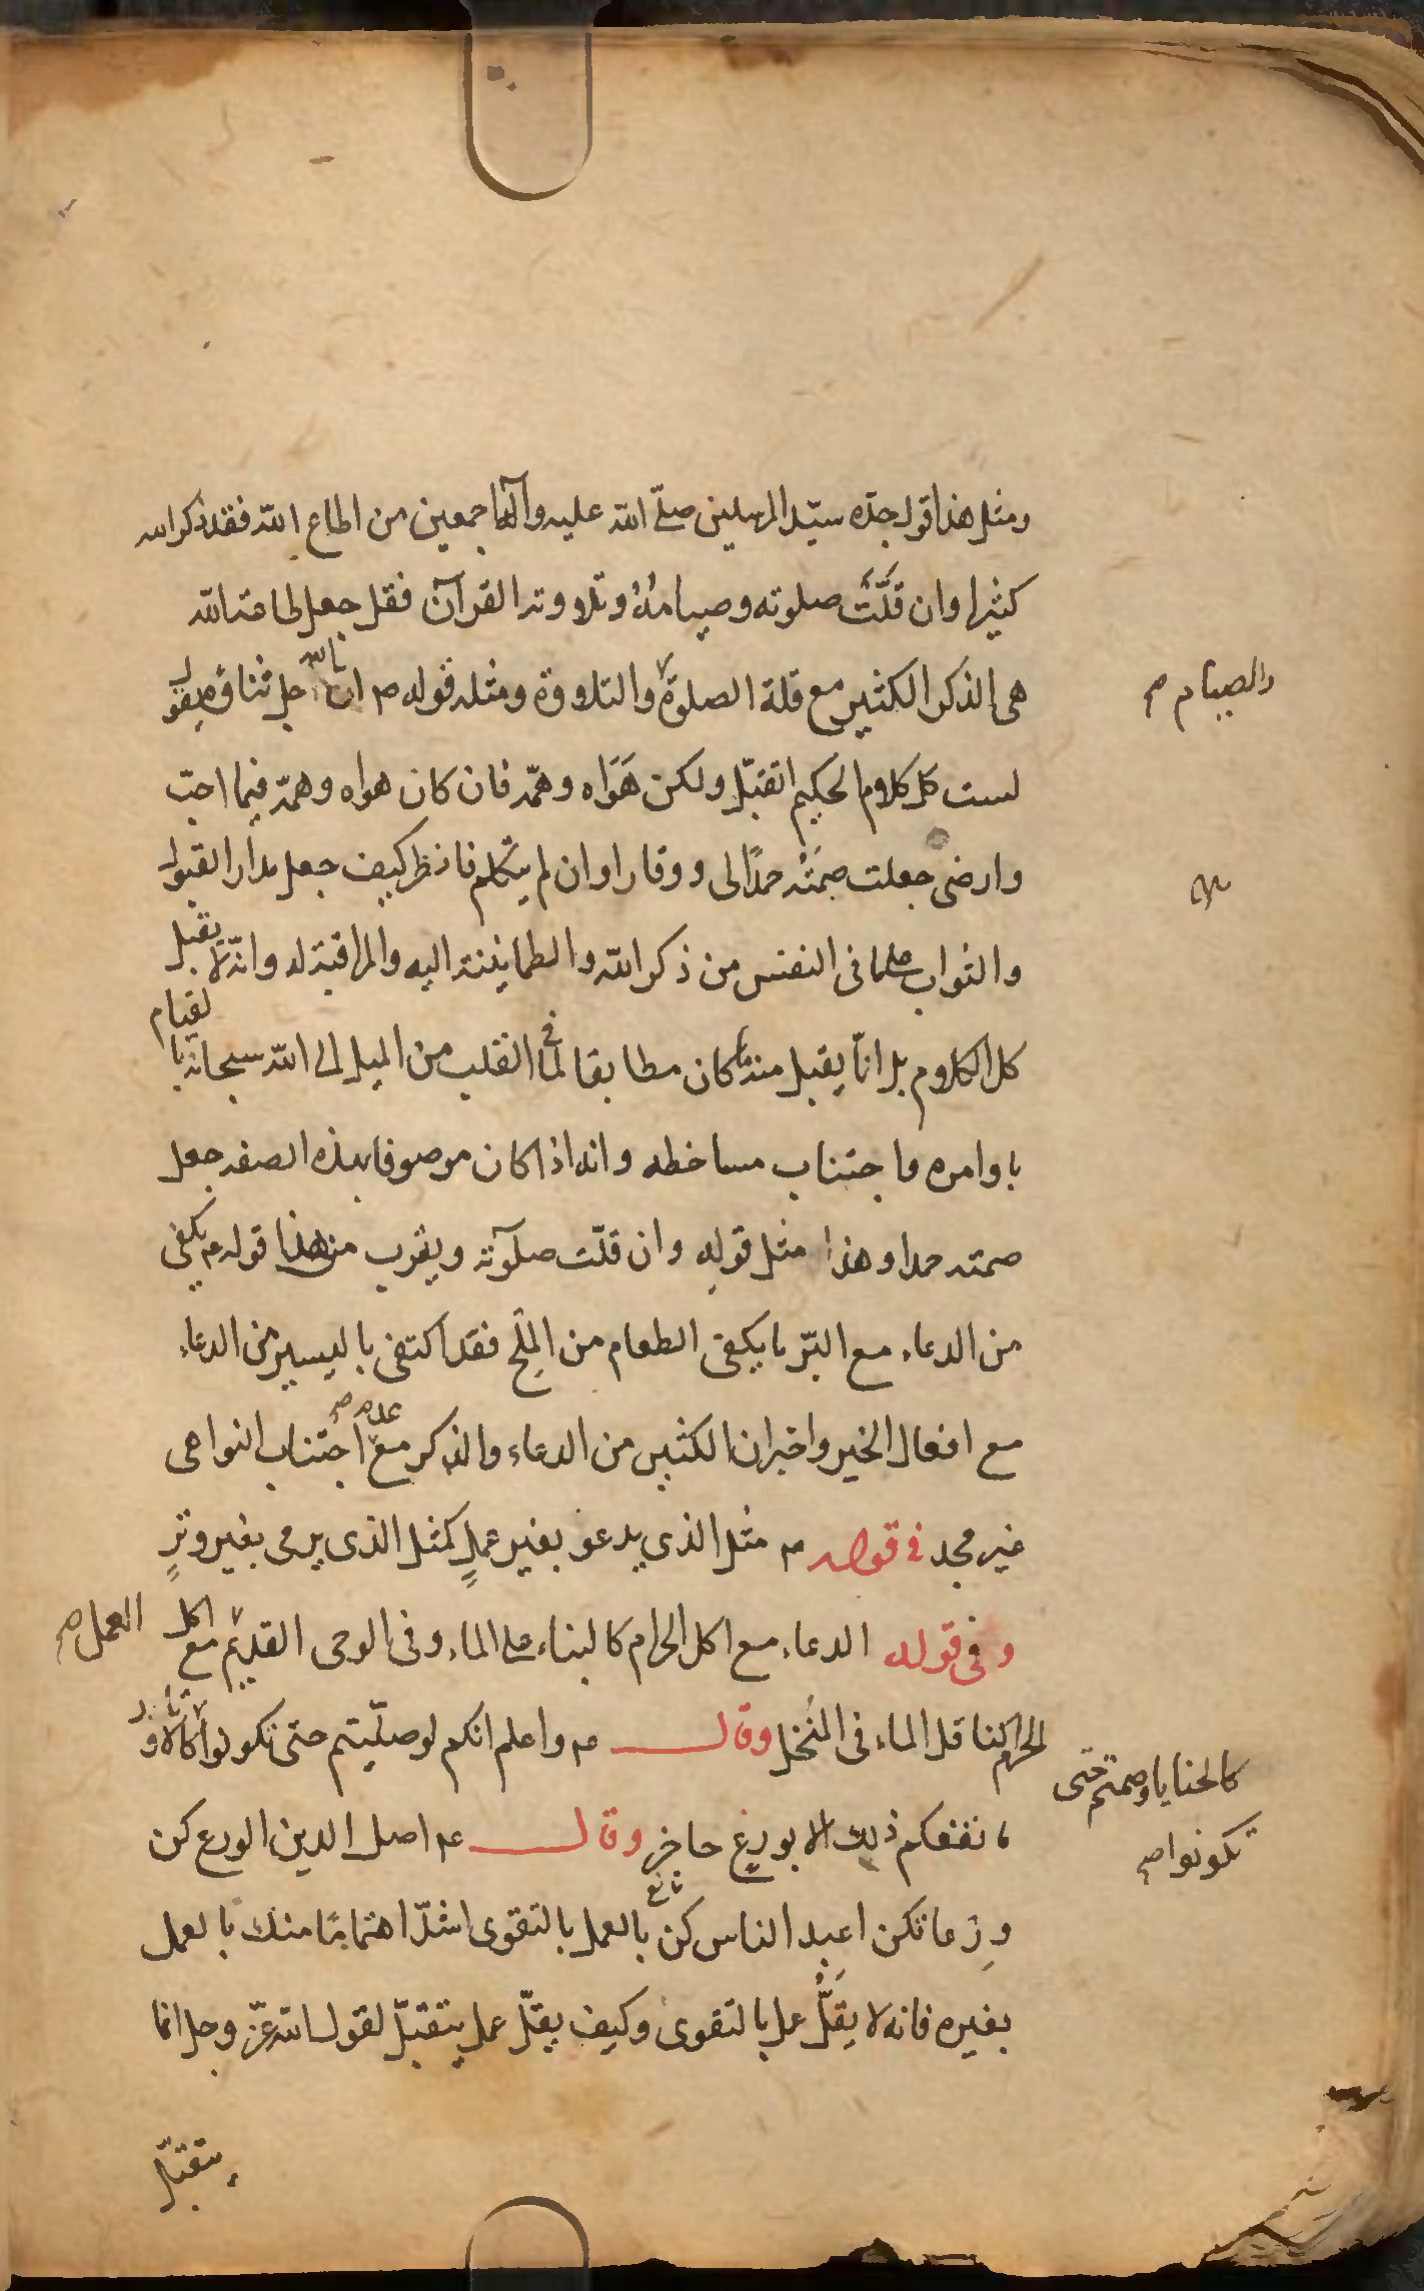 ومثل هذا قول جدّه سيّد المرسلين صلّى الله عليه وآله اجمعين من اطاع الله فقد ذكر الله
كثيرا وان قلّت صلوته وصيامه وتلاوته القرآن فقد جعل طاعة الله
هى الذكر الكثير مع قلة الصلوة والتلاوة ومثله قوله ص ان الله جل ثناؤه يقول
والصيام صح
لست كل كلام الحكيم اتقبّل ولكن هَوَاه وهمّه فان كان هواه وهمّه فيما احبّ
وارضى جعلت صمته حمدًا لى ووقارا وان لم يتكلم فانظر كيف جعل مدار القبول
والثواب على ما فى النفس من ذكر الله والطمانينة اليه والمراقبة له وانه لا يقبل
كل الكلام بل انما يقبل منه ما كان مطابقا لما فى القلب من الميل الى الله سبحانه بالقيام
باوامره واجتناب مساخطه وانه اذا كان موصوفا بهذه الصفة جعل
صمته حمدا وهذا مثل قوله وان قلّت صلوته ويقرب من هذا قوله ع يكفى
من الدعاء مع البرّ ما يكفى الطعام من الملح فقد اكتفى باليسير من الدعاء
مع افعال الخير واخبر ان الكثير من الدعاء والذكر مع عدم صح اجتناب النواهى
غير مجد فى قوله ص مثل الذى يدعو بغير عملٍ كمثل الذى يرمى بغير وترٍ
وفى قوله الدعاء مع اكل الحرام كالبناء على الماء وفى الوحى القديم العمل صح مع اكل
الحرام كناقل الماء فى المُنخل وقال ص واعلم انكم لو صلّيتم حتى تكونوا كالاوتاد
كالحنايا وصمتم حتى
تكونوا صح
ما نفعكم ذلك الا بورعٍ حاجز وقال ع اصل الدين الورع كن
ورعا تكن اعبد الناس كن بالعمل بالتقوى اشدّ اهتماما منك بالعمل
بغيره فانه لا يقلّ عمل بالتقوى وكيف يقلّ عمل يتقبّل لقول الله عزّ وجل انما
يتقبّل